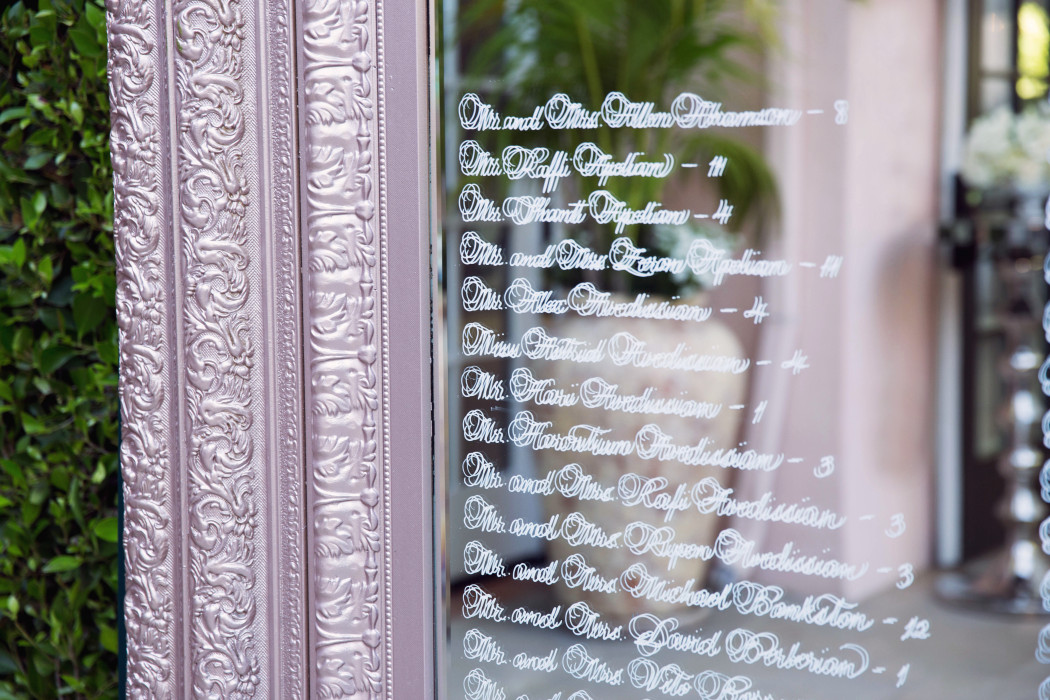 Mr. and Mrs. Allen Abramson - 8
Mr. Raffi Apelian - 11
Ms. Shanti Apelian - 4
Mr. and Mrs. Zaven Apelian - 11
Mr. Alex Avedissian - 4
Miss Avedissian - 4
Mr. Avedissian - 1
Mr. Haroutium Avedissian - 3
Mr. and Mrs. Raffi Avedissian - 3
Mr. and Mrs. Ryan Avedissian - 3
Mr. and Mrs. Michael Bankston - 12
Mr. and Mrs. David Berberian - 1
Mr. and Mrs. Vito